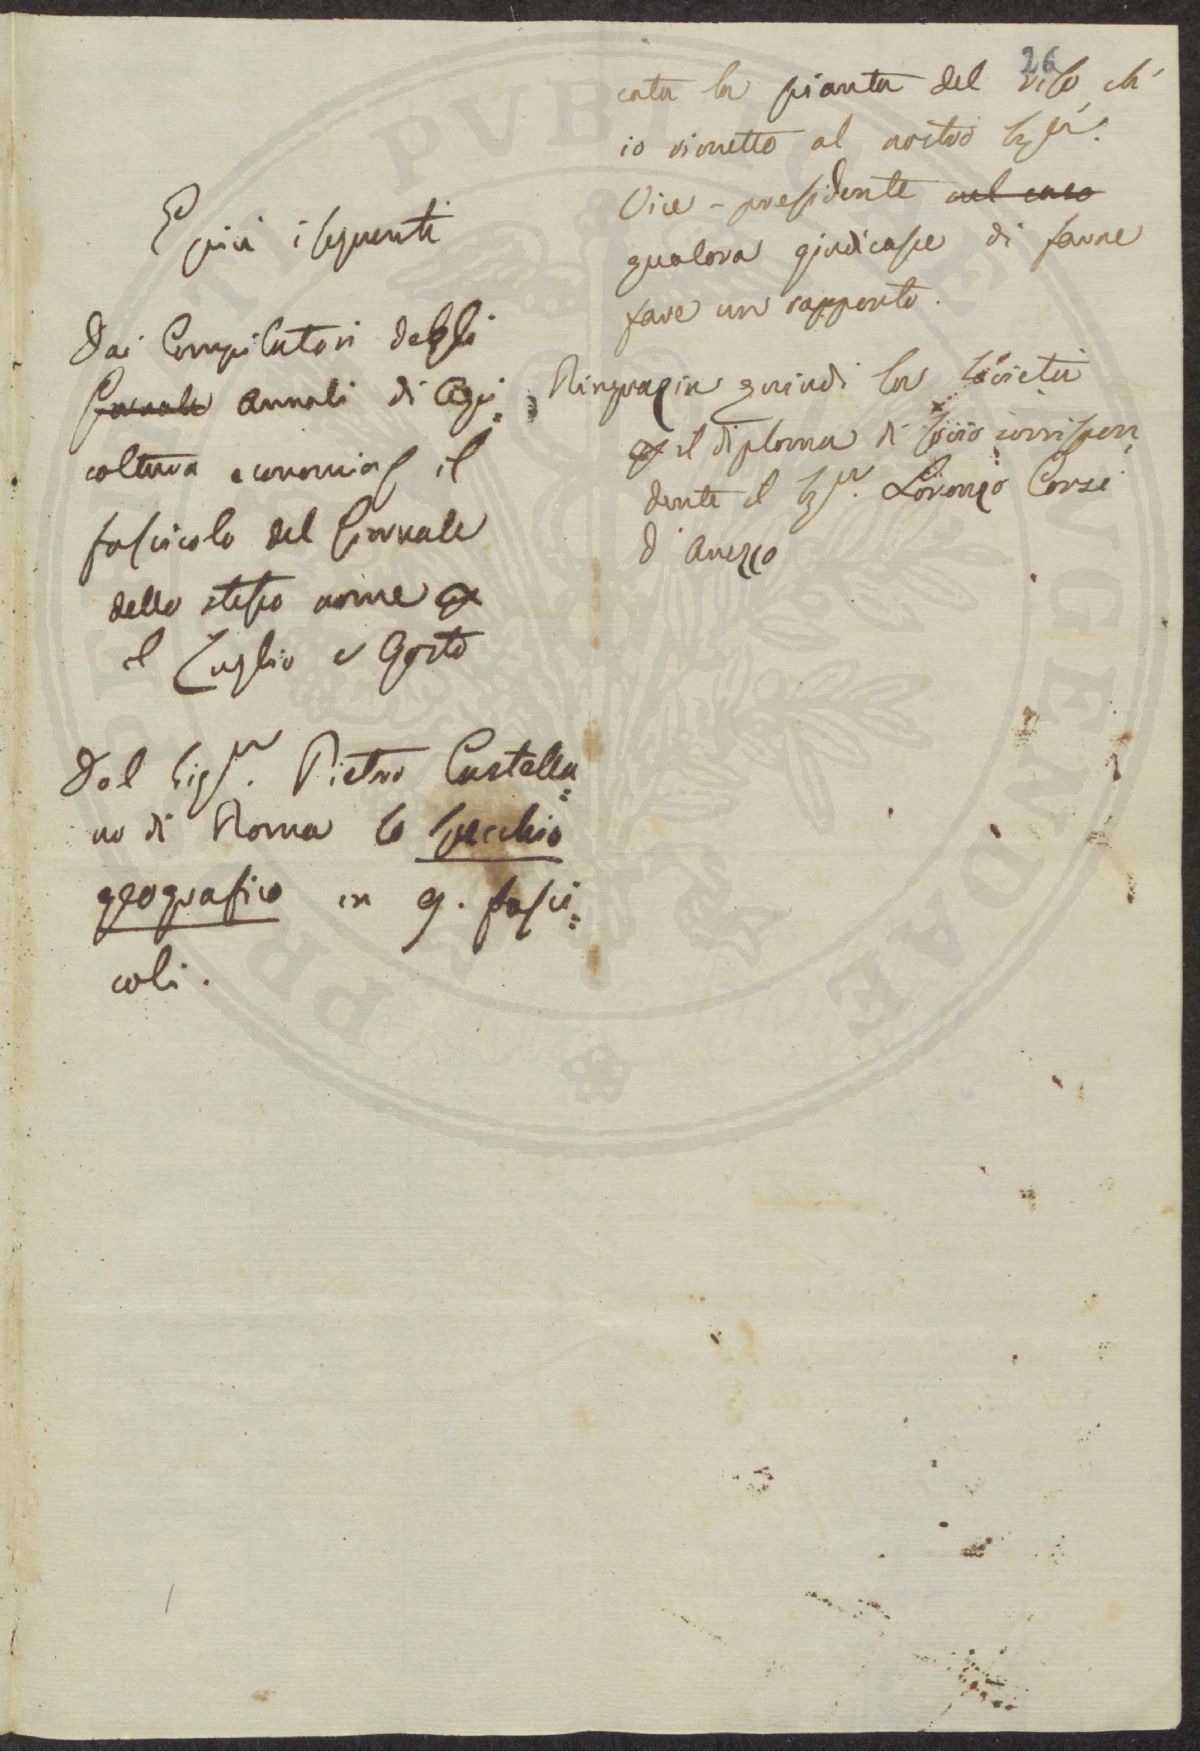 26
cata la pianta del riso, ch'
io rimetto al nostro Sig.r
Vice-presidente nel caso
qualora giudicasse di farne
fare un rapporto.
Ringrazia quindi la Società
il diploma di socio corrispon=
dente il Sig.r Lorenzo Corsi
d'Arezzo
E più i seguenti
Dai Compilatori degli
Giornale Annali di Agri=
coltura economia il
fascicolo del Giornale
dello stesso nome
il Luglio e Agosto
Dal Sig.r Pietro Castella=
no di Roma lo Specchio
geografico in 9. fasci=
coli.
PVBLICAE